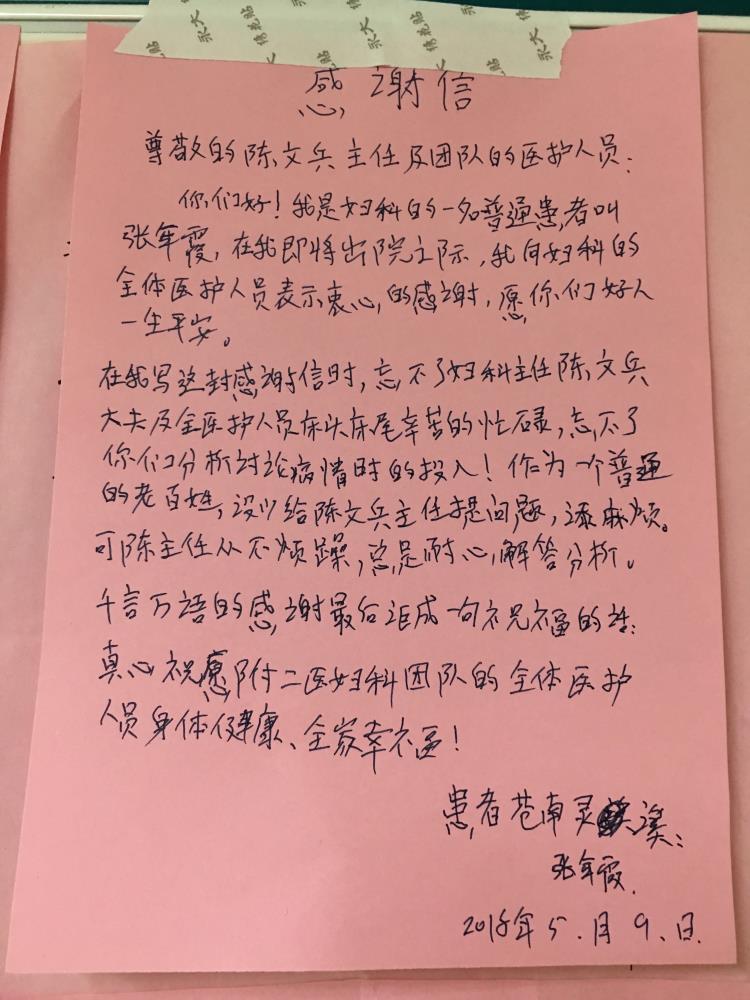 感谢信
尊敬的陈文兵主任及团队的医护人员:
你们好!我是妇科的一名普通患者叫
张年霞,在我即将出院之际,我向妇科的
全体医护人员表示衷心的感谢,愿你们好人
一生平安。
在我写这封感谢信时,忘不了妇科主任陈文兵
大夫及全医护人员床头床尾辛苦的忙碌,忘不了
你们分析讨论病情时的投入!作为一个普通
的老百姓,没少给陈文兵主任提问题,添麻烦。
可陈主任从不烦躁,总是耐心解答分析。
千言万语的感谢最后汇成一句祝福的话:
真心祝愿附二医妇科团队的全体医护
人员身体健康、全家幸福!
患者苍南灵溪:
张年霞.
2018年5.月9.日.